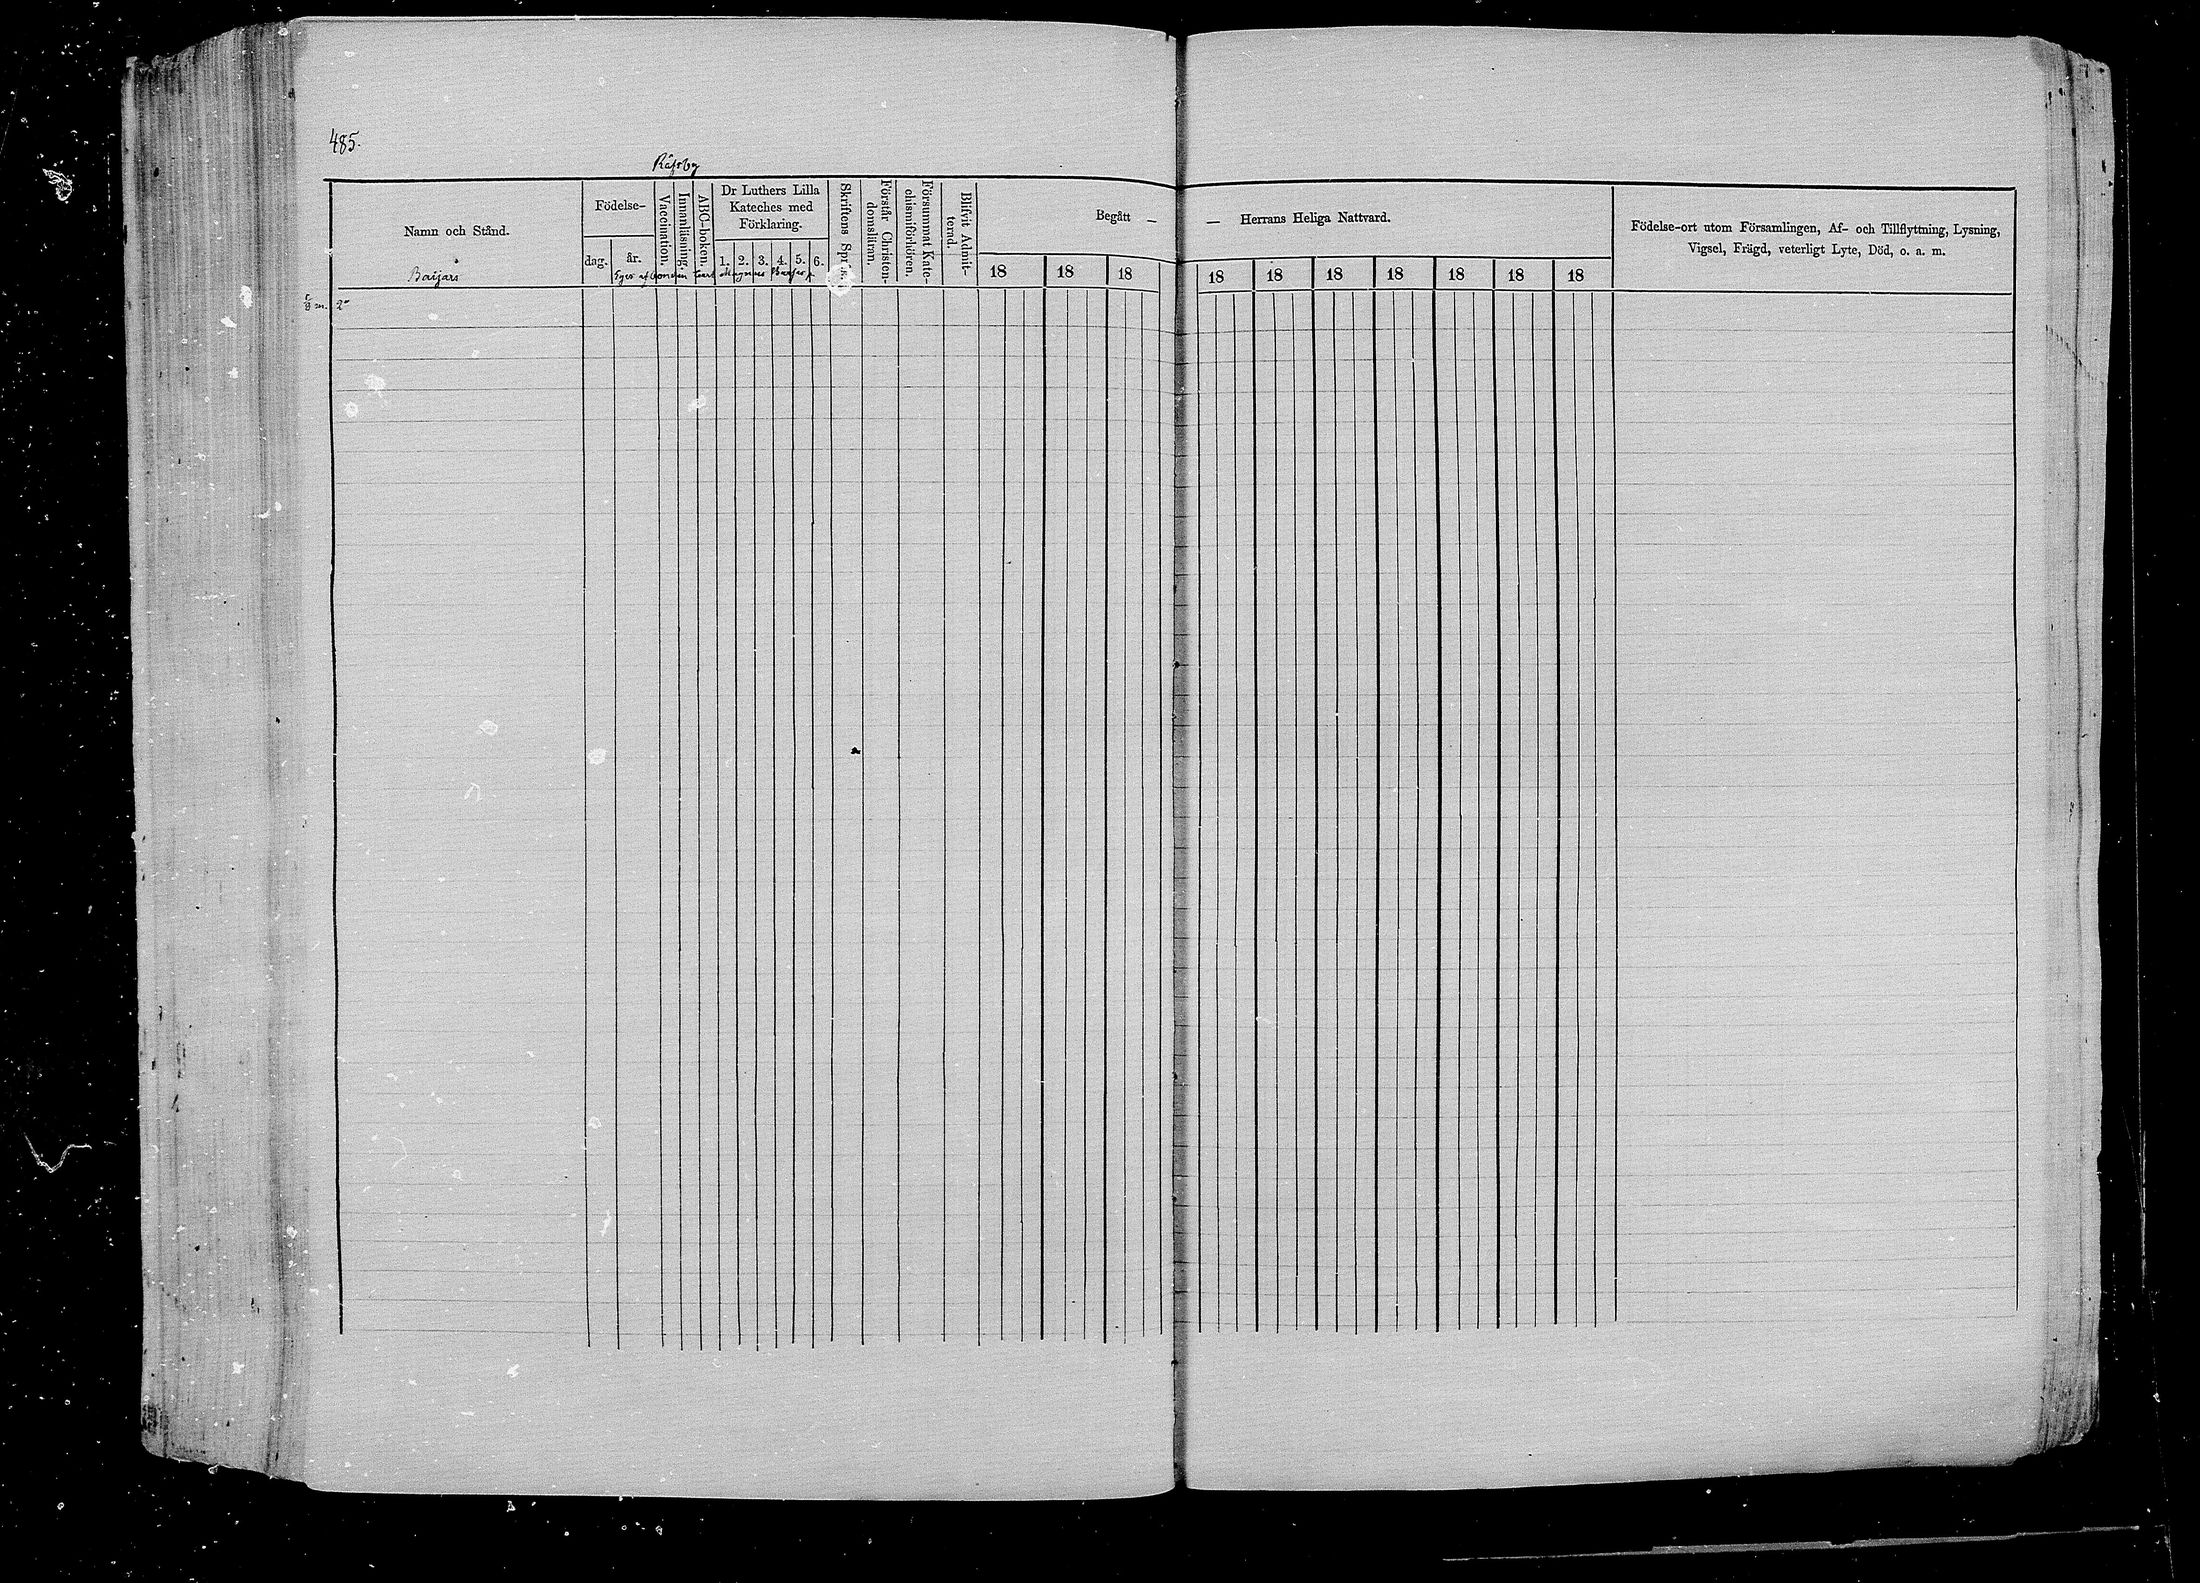 485.
Räfsby
Namn och Stånd.
Födelse-
dag.
år.
Vaccination.
Innanläsning.
ABC-boken.
Dr Luthers Lilla
Kateches med
Förklaring.
1. 2. 3. 4. 5. 6.
Skriftens Spr
Förstår Christen-
domsläran.
Försummat Kate-
chismförhören.
Blifvit Admit-
terad.
Begått — — Herrans Heliga Nattvard.
18 18 18 18 18 18 18 18 18 18
Födelse-ort utom Församlingen, Af- och Tillflyttning, Lysning,
Vigsel, Frägd, veterligt Lyte, Död, o. a. m.
Barjars
Eges af Carl Magnus Barjas
m. 2